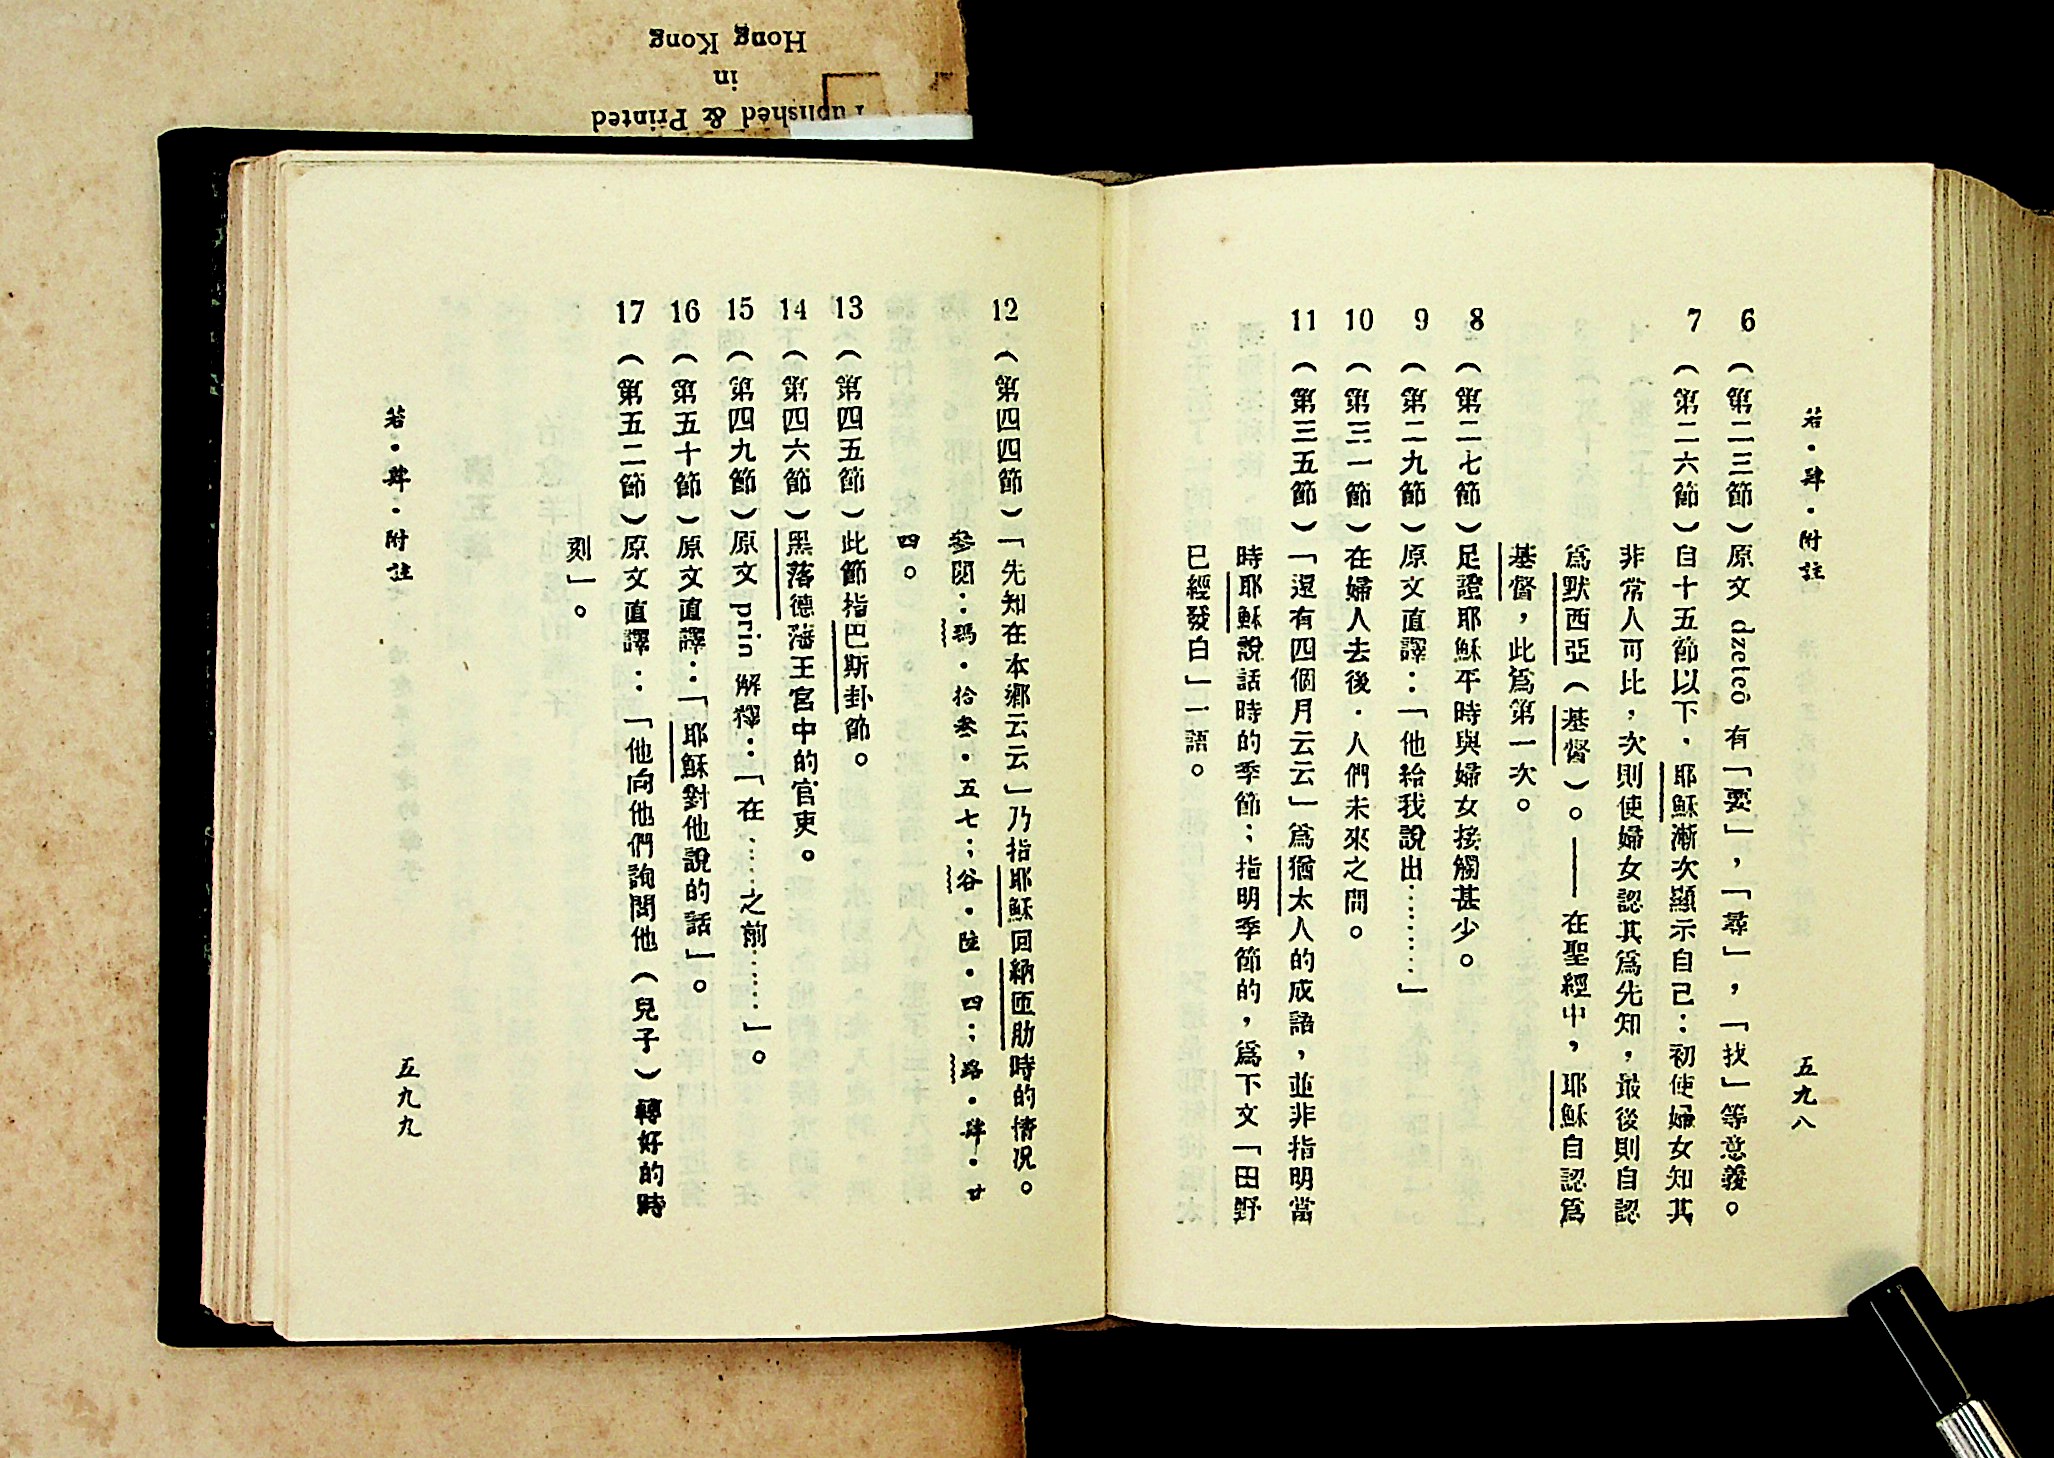 Published & Printed
in
Hong Kong
若・肆・附註
五九八
6（第二三節）原文 dzeteô 有「要」，「尋」，「找」等意義。
7（第二六節）自十五節以下，耶穌漸次顯示自己：初使婦女知其
非常人可比，次則使婦女認其爲先知，最後則自認
爲默西亞（基督）。——在聖經中，耶穌自認爲
基督，此爲第一次。
8（第二七節）足證耶穌平時與婦女接觸甚少。
9（第二九節）原文直譯：「他給我說出………」
10（第三一節）在婦人去後，人們未來之間。
11（第三五節）「還有四個月云云」爲猶太人的成語，並非指明當
時耶穌說話時的季節；指明季節的，爲下文「田野
已經發白」一語。
12（第四四節）「先知在本鄉云云」乃指耶穌回納匝肋時的情況。
參閱：瑪・拾叁・五七；谷・陸・四；路・肆・廿
四。
13（第四五節）此節指巴斯卦節。
14（第四六節）黑落德藩王宮中的官吏。
15（第四九節）原文 prin 解釋：「在……之前……」。
16（第五十節）原文直譯：「耶穌對他說的話」。
17（第五二節）原文直譯：「他向他們詢問他（兒子）轉好的時
刻」。
若・肆・附註
五九九